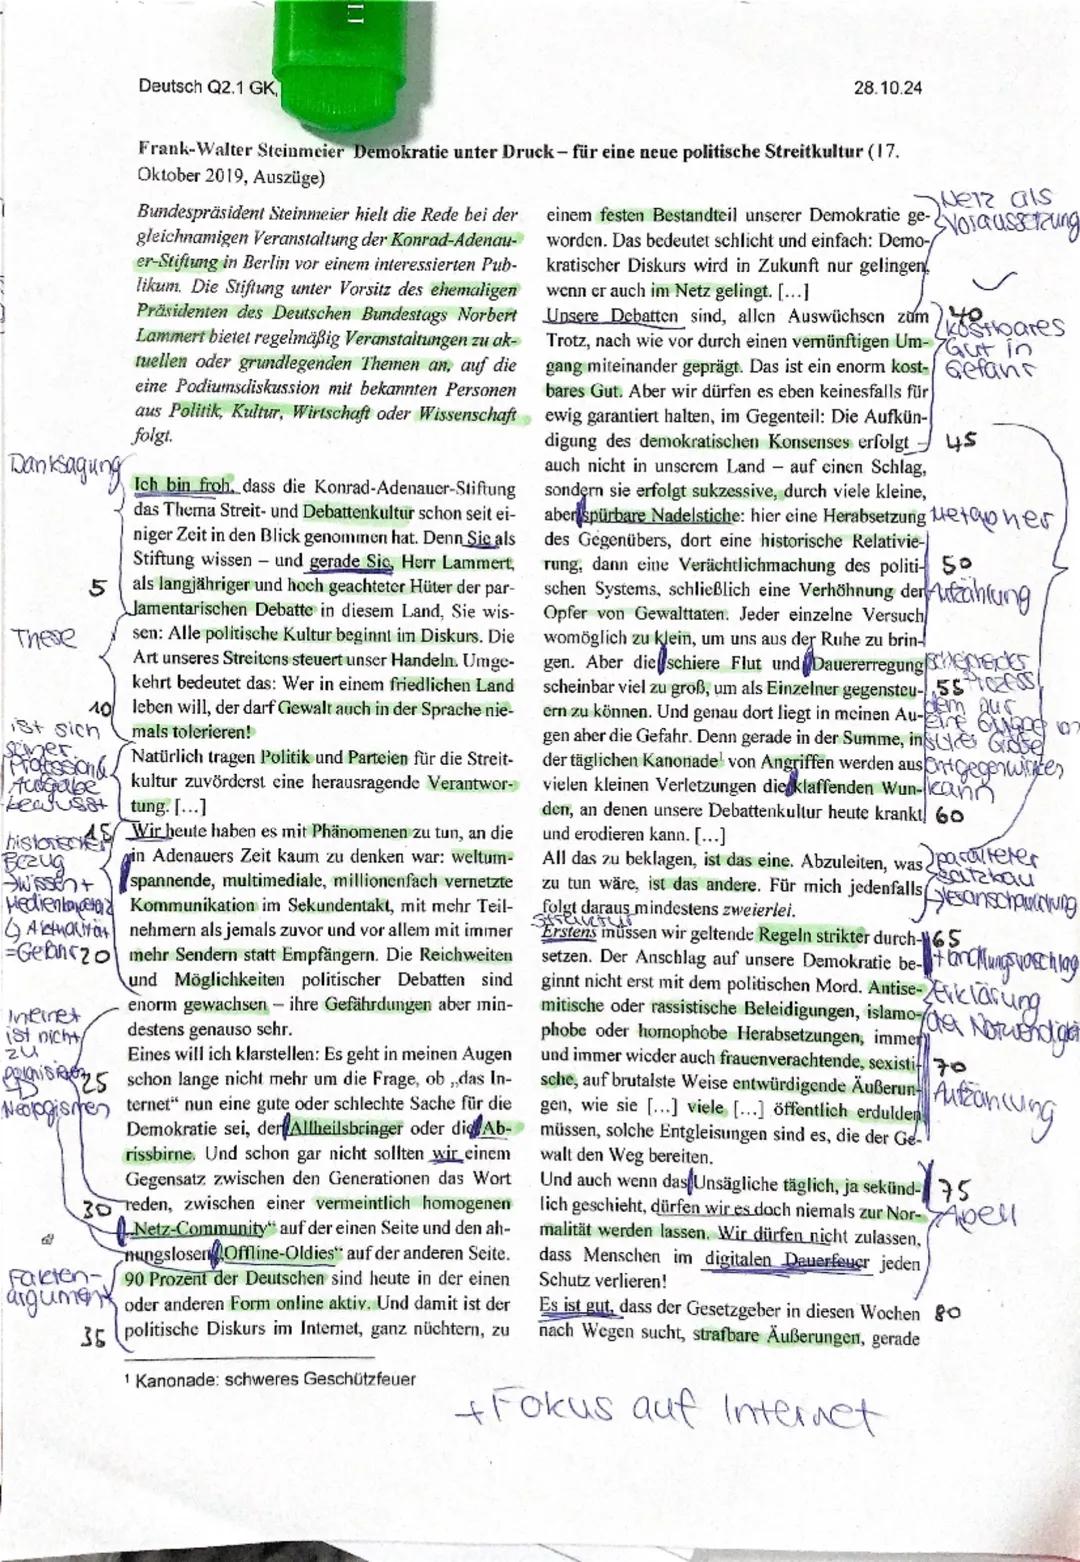 Deutsch Q2.1 GK,
28.10.24
Frank-Walter Steinmeier Demokratie unter Druck – für eine neue politische Streitkultur (17.
Oktober 2019, Auszüge)
Bundespräsident Steinmeier hielt die Rede bei der
gleichnamigen Veranstaltung der Konrad-Adenau-
er-Stiftung in Berlin vor einem interessierten Pub-
likum. Die Stiftung unter Vorsitz des ehemaligen
Präsidenten des Deutschen Bundestags Norbert
Lammert bietet regelmäßig Veranstaltungen zu ak-
tuellen oder grundlegenden Themen an, auf die
eine Podiumsdiskussion mit bekannten Personen
aus Politik, Kultur, Wirtschaft oder Wissenschaft
folgt.
Danksagung
Ich bin froh, dass die Konrad-Adenauer-Stiftung
das Thema Streit- und Debattenkultur schon seit ei-
niger Zeit in den Blick genommen hat. Denn Sie als
Stiftung wissen – und gerade Sie, Herr Lammert,
5 als langjähriger und hoch geachteter Hüter der par-
lamentarischen Debatte in diesem Land, Sie wis-
These
sen: Alle politische Kultur beginnt im Diskurs. Die
Art unseres Streitens steuert unser Handeln. Umge-
kehrt bedeutet das: Wer in einem friedlichen Land
10 leben will, der darf Gewalt auch in der Sprache nie-
mals tolerieren!
ist sich
seiner
Profession &
Aufgabe
bewusst
Natürlich tragen Politik und Parteien für die Streit-
kultur zuvörderst eine herausragende Verantwor-
tung. [...]
15 Wir heute haben es mit Phänomenen zu tun, an die
historischer
Bezug
→Wissen +
Medienkompetenz
↳ Aktualität
=Gefahr
in Adenauers Zeit kaum zu denken war: weltum-
spannende, multimediale, millionenfach vernetzte
Kommunikation im Sekundentakt, mit mehr Teil-
nehmern als jemals zuvor und vor allem mit immer
20 mehr Sendern statt Empfängern. Die Reichweiten
und Möglichkeiten politischer Debatten sind
enorm gewachsen – ihre Gefährdungen aber min-
destens genauso sehr.
Internet
ist nicht
zu
polarisieren
Neologismen
Eines will ich klarstellen: Es geht in meinen Augen
25 schon lange nicht mehr um die Frage, ob „das In-
ternet“ nun eine gute oder schlechte Sache für die
Demokratie sei, der Allheilsbringer oder die Ab-
rissbirne. Und schon gar nicht sollten wir einem
Gegensatz zwischen den Generationen das Wort
30 reden, zwischen einer vermeintlich homogenen
„Netz-Community“ auf der einen Seite und den ah-
nungslosen „Offline-Oldies“ auf der anderen Seite.
Fakten-
argument
90 Prozent der Deutschen sind heute in der einen
oder anderen Form online aktiv. Und damit ist der
35 politische Diskurs im Internet, ganz nüchtern, zu
¹ Kanonade: schweres Geschützfeuer
einem festen Bestandteil unserer Demokratie ge-
worden. Das bedeutet schlicht und einfach: Demo-
kratischer Diskurs wird in Zukunft nur gelingen,
wenn er auch im Netz gelingt. [...]
Netz als
Voraussetzung
Unsere Debatten sind, allen Auswüchsen zum 40
Trotz, nach wie vor durch einen vernünftigen Um-
gang miteinander geprägt. Das ist ein enorm kost-
bares Gut. Aber wir dürfen es eben keinesfalls für
ewig garantiert halten, im Gegenteil: Die Aufkün-
kostbares
Gut in
Gefahr
digung des demokratischen Konsenses erfolgt – 45
auch nicht in unserem Land – auf einen Schlag,
sondern sie erfolgt sukzessive, durch viele kleine,
aber spürbare Nadelstiche: hier eine Herabsetzung Metapher
des Gegenübers, dort eine historische Relativie-
rung, dann eine Verächtlichmachung des politi- 50
schen Systems, schließlich eine Verhöhnung der Aufzählung
Opfer von Gewalttaten. Jeder einzelne Versuch
womöglich zu klein, um uns aus der Ruhe zu brin-
gen. Aber die schiere Flut und Dauererregung
scheinbar viel zu groß, um als Einzelner gegensteu- 55
ern zu können. Und genau dort liegt in meinen Au-
gen aber die Gefahr. Denn gerade in der Summe, in
der täglichen Kanonade¹ von Angriffen werden aus
vielen kleinen Verletzungen die klaffenden Wun-
den, an denen unsere Debattenkultur heute krankt 60
und erodieren kann. [...]
Prozess
dem nur
eine Gruppe
Größe
entgegenwirken
kann
All das zu beklagen, ist das eine. Abzuleiten, was
zu tun wäre, ist das andere. Für mich jedenfalls
folgt daraus mindestens zweierlei.
paralleler
Satzbau
Veranschaulichung
Struktur
Erstens müssen wir geltende Regeln strikter durch- 65
setzen. Der Anschlag auf unsere Demokratie be-
ginnt nicht erst mit dem politischen Mord. Antise-
mitische oder rassistische Beleidigungen, islamo-
phobe oder homophobe Herabsetzungen, immer
und immer wieder auch frauenverachtende, sexisti- 70
sche, auf brutalste Weise entwürdigende Äußerun-
gen, wie sie [...] viele [...] öffentlich erdulden
müssen, solche Entgleisungen sind es, die der Ge-
walt den Weg bereiten.
Handlungsvorschlag
Erklärung
der Notwendigkeit
Aufzählung
Und auch wenn das Unsägliche täglich, ja sekünd- 75
lich geschieht, dürfen wir es doch niemals zur Nor-
malität werden lassen. Wir dürfen nicht zulassen,
dass Menschen im digitalen Dauerfeuer jeden
Schutz verlieren!
Apell
Es ist gut, dass der Gesetzgeber in diesen Wochen 80
nach Wegen sucht, strafbare Äußerungen, gerade
+Fokus auf Internet